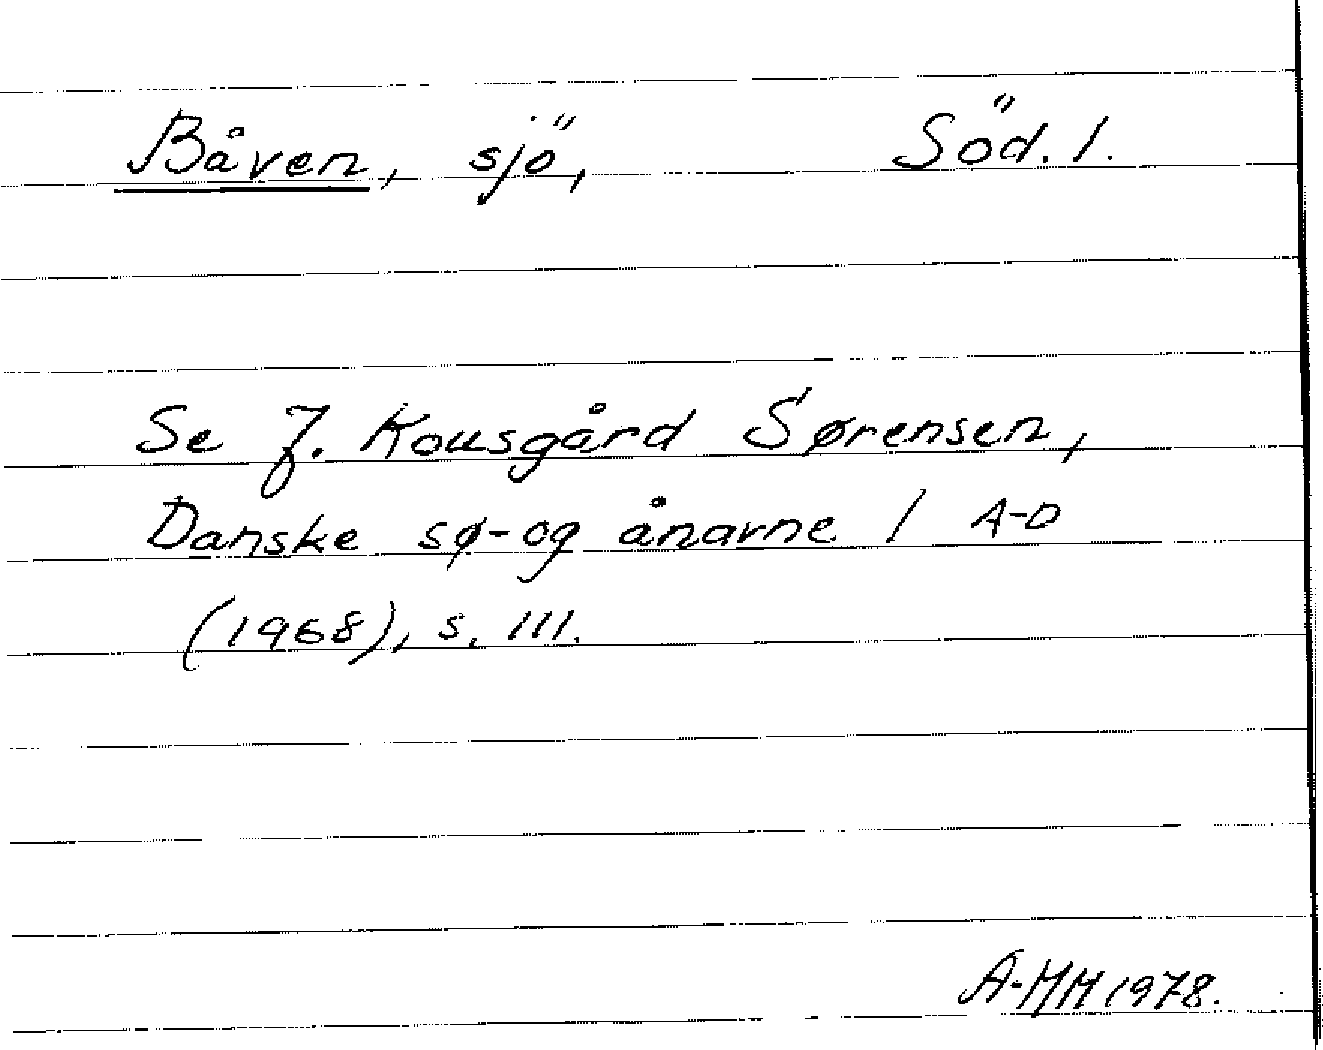 Båven, sjö, Söd. l.
Se J. Kousgård Sørensen,
Danske sø- og ånavne 1 A-D
(1968), s. 111.
A-MM 1978.